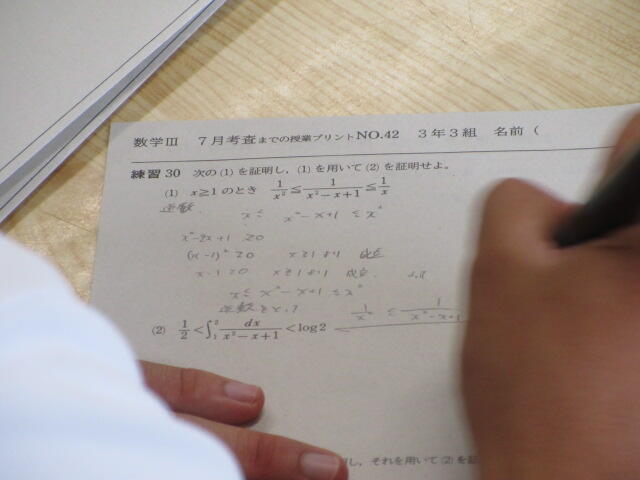 数学Ⅲ 7月考査までの授業プリントNO.42 3年3組 名前(
練習30 次の(1)を証明し,(1)を用いて(2)を証明せよ。
(1) x≧1のとき 1/x² ≦ 1/(x²−x+1) ≦ 1/x
逆数
x ≤ x²−x+1 ≤ x²
x²−2x+1 ≥0
(x−1)² ≥0 x≥1より 成立
x−1≥0 x≥1より 成立
x ≤ x²−x+1 ≤ x²
逆数をとり
1/x² ≤ 1/(x²−x+1)
(2) 1/2 < ∫₁² dx/(x²−x+1) < log2
し,それを用いて(2)を証